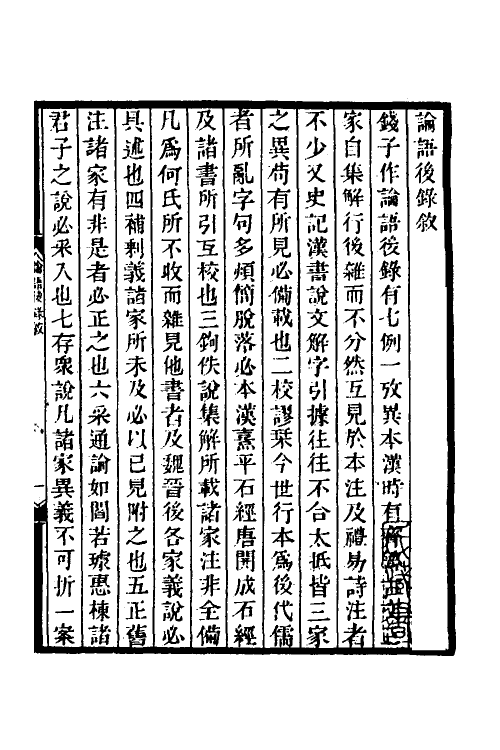 論語後錄敘
錢子作論語後錄有七例一攷異本漢時有
家自集解行後雜而不分然互見於本注及禮易詩注者
不少又史記漢書說文解字引據往往不合太抵皆三家
之異苟有所見必備載也二校謬琹今世行本爲後代儒
者所亂字句多煩簡脫落必本漢熹平石經唐開成石經
及諸書所引互校也三鉤佚說集解所載諸家注非全備
凡爲何氏所不收而雜見他書者及魏晉後各家義說必
具述也四補剩義諸家所未及必以已見附之也五正舊
注諸家有非是者必正之也六采通論如閻若璩惠棟諸
君子之說必采入也七存衆說凡諸家異義不可折一案
論語後錄敘
一